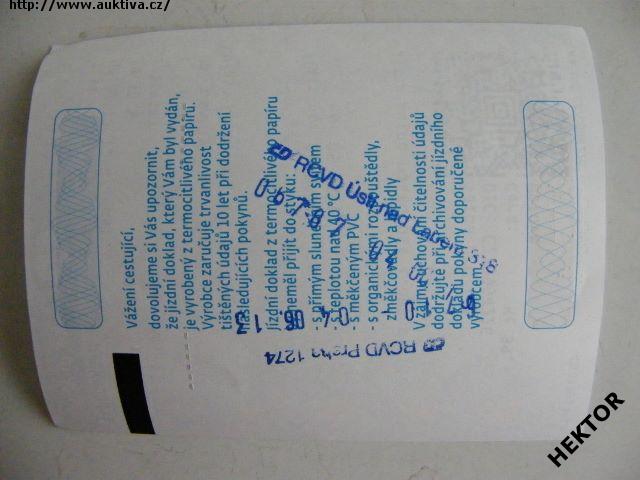 http://www.auktiva.cz/
Vážení cestující,
dovolujeme si Vás upozornit,
že jízdní doklad, který Vám byl vydán,
je vyrobený z termocitlivého papíru.
Výrobce zaručuje trvanlivost
tištěných údajů 10 let při dodržení
následujících pokynů.
Jízdní doklad z termocitlivého papíru
neměl přijít do styku:
- s přímým slunečním svitem
- s teplotou nad 40 °C
- s měkčeným PVC
- s organickými rozpouštědly,
změkčovadly a lepidly
V zájmu uchování čitelnosti údajů
dodržujte při archivování jízdního
dokladu pokyny doporučené
výrobcem.
RCVD Ústí nad Labem 318
RCVD Praha 1274
HEKTOR